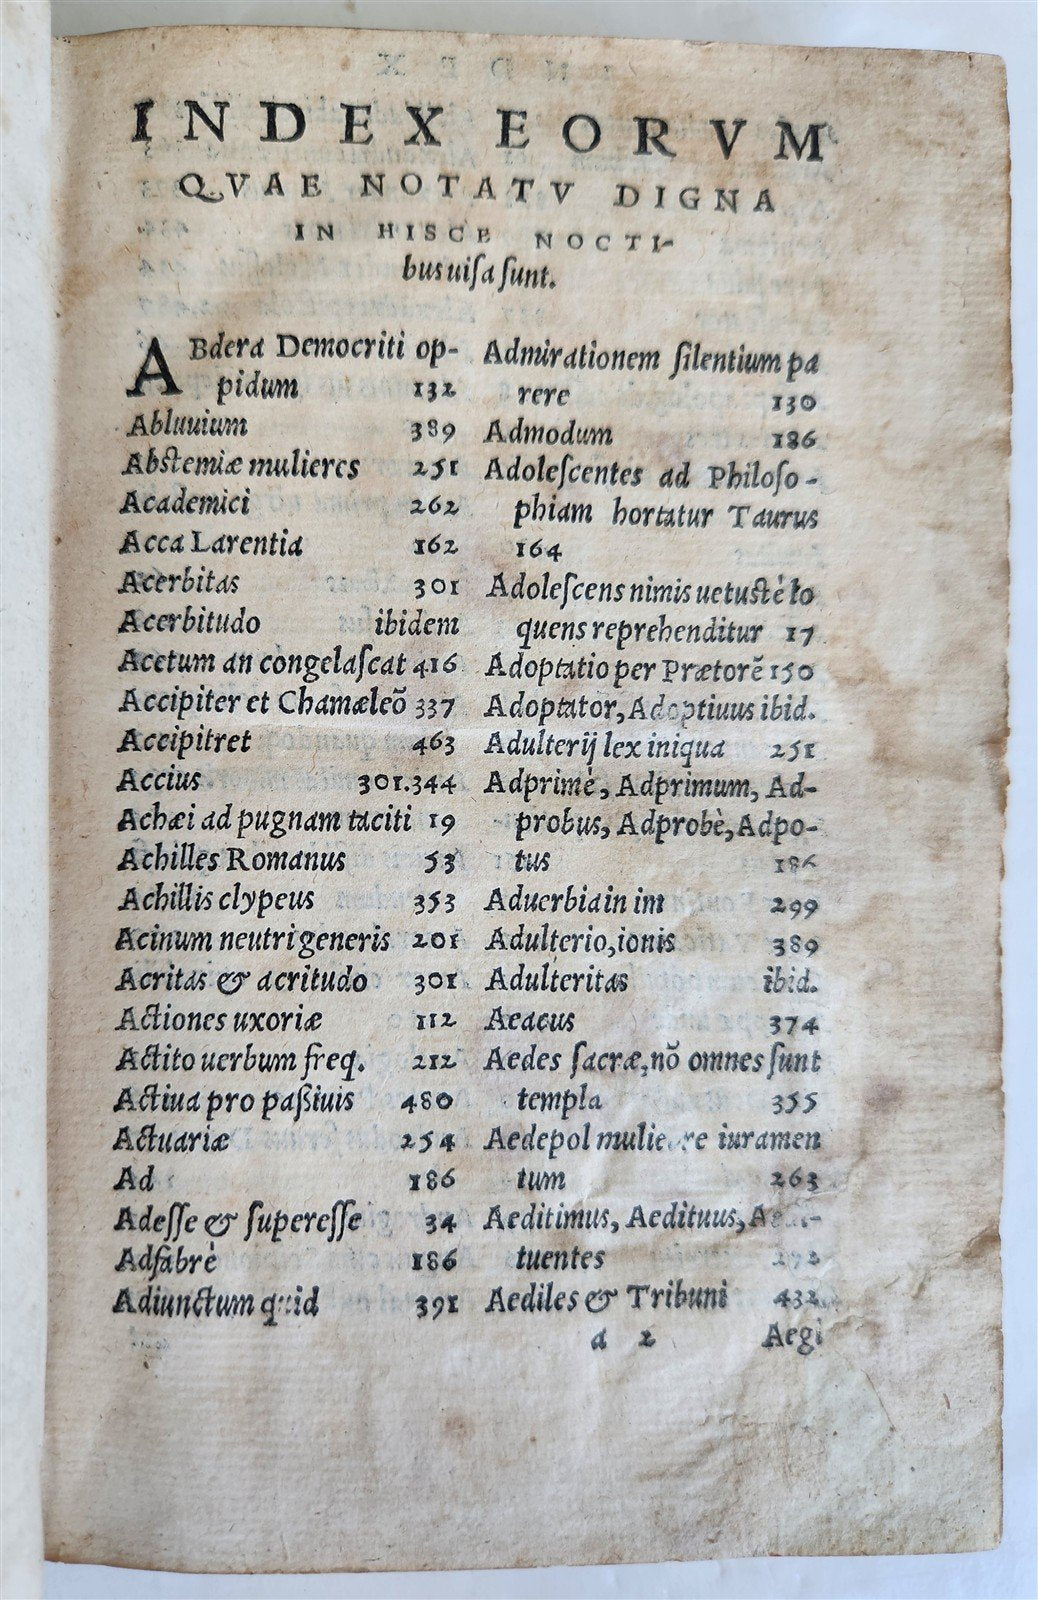 INDEX EORVM
QVAE NOTATV DIGNA
IN HISCE NOCTI-
bus uisa sunt.
ABdera Democriti op-
pidum 132
Abluuium 389
Abstemiæ mulieres 251
Academici 262
Acca Larentia 162
Acerbitas 301
Acerbitudo ibidem
Acetum an congelascat 416
Accipiter et Chamæleõ 337
Accipitret 463
Accius 301.344
Achæi ad pugnam taciti 19
Achilles Romanus 53
Achillis clypeus 353
Acinum neutri generis 201
Acritas & acritudo 301
Actiones uxoriæ 112
Actito uerbum freq. 212
Actiua pro paßiuis 480
Actuariæ 254
Ad 186
Adesse & superesse 34
Adfabrè 186
Adiunctum quid 391
Admirationem silentium pa
rere 130
Admodum 186
Adolescentes ad Philoso-
phiam hortatur Taurus
164
Adolescens nimis uetustè lo
quens reprehenditur 17
Adoptatio per Prætorẽ 150
Adoptator, Adoptiuus ibid.
Adulterij lex iniqua 251
Adprimè, Adprimum, Ad-
probus, Adprobè, Adpo-
tus 186
Aduerbia in im 299
Adulterio, ionis 389
Adulteritas ibid.
Aeacus 374
Aedes sacræ, nõ omnes sunt
templa 355
Aedepol muliebre iuramen
tum 263
Aeditimus, Aedituus,
tuentes
Aediles & Tribuni 432
a 2 Aegi